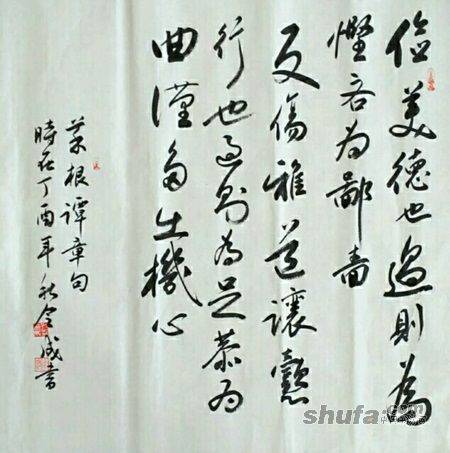 俭美德也過則為
慳吝為鄙嗇
反傷雅道讓懿
行也過則為足恭為
曲謹多出機心
菜根譚章句
時在丁酉年秋成書
shufa.com